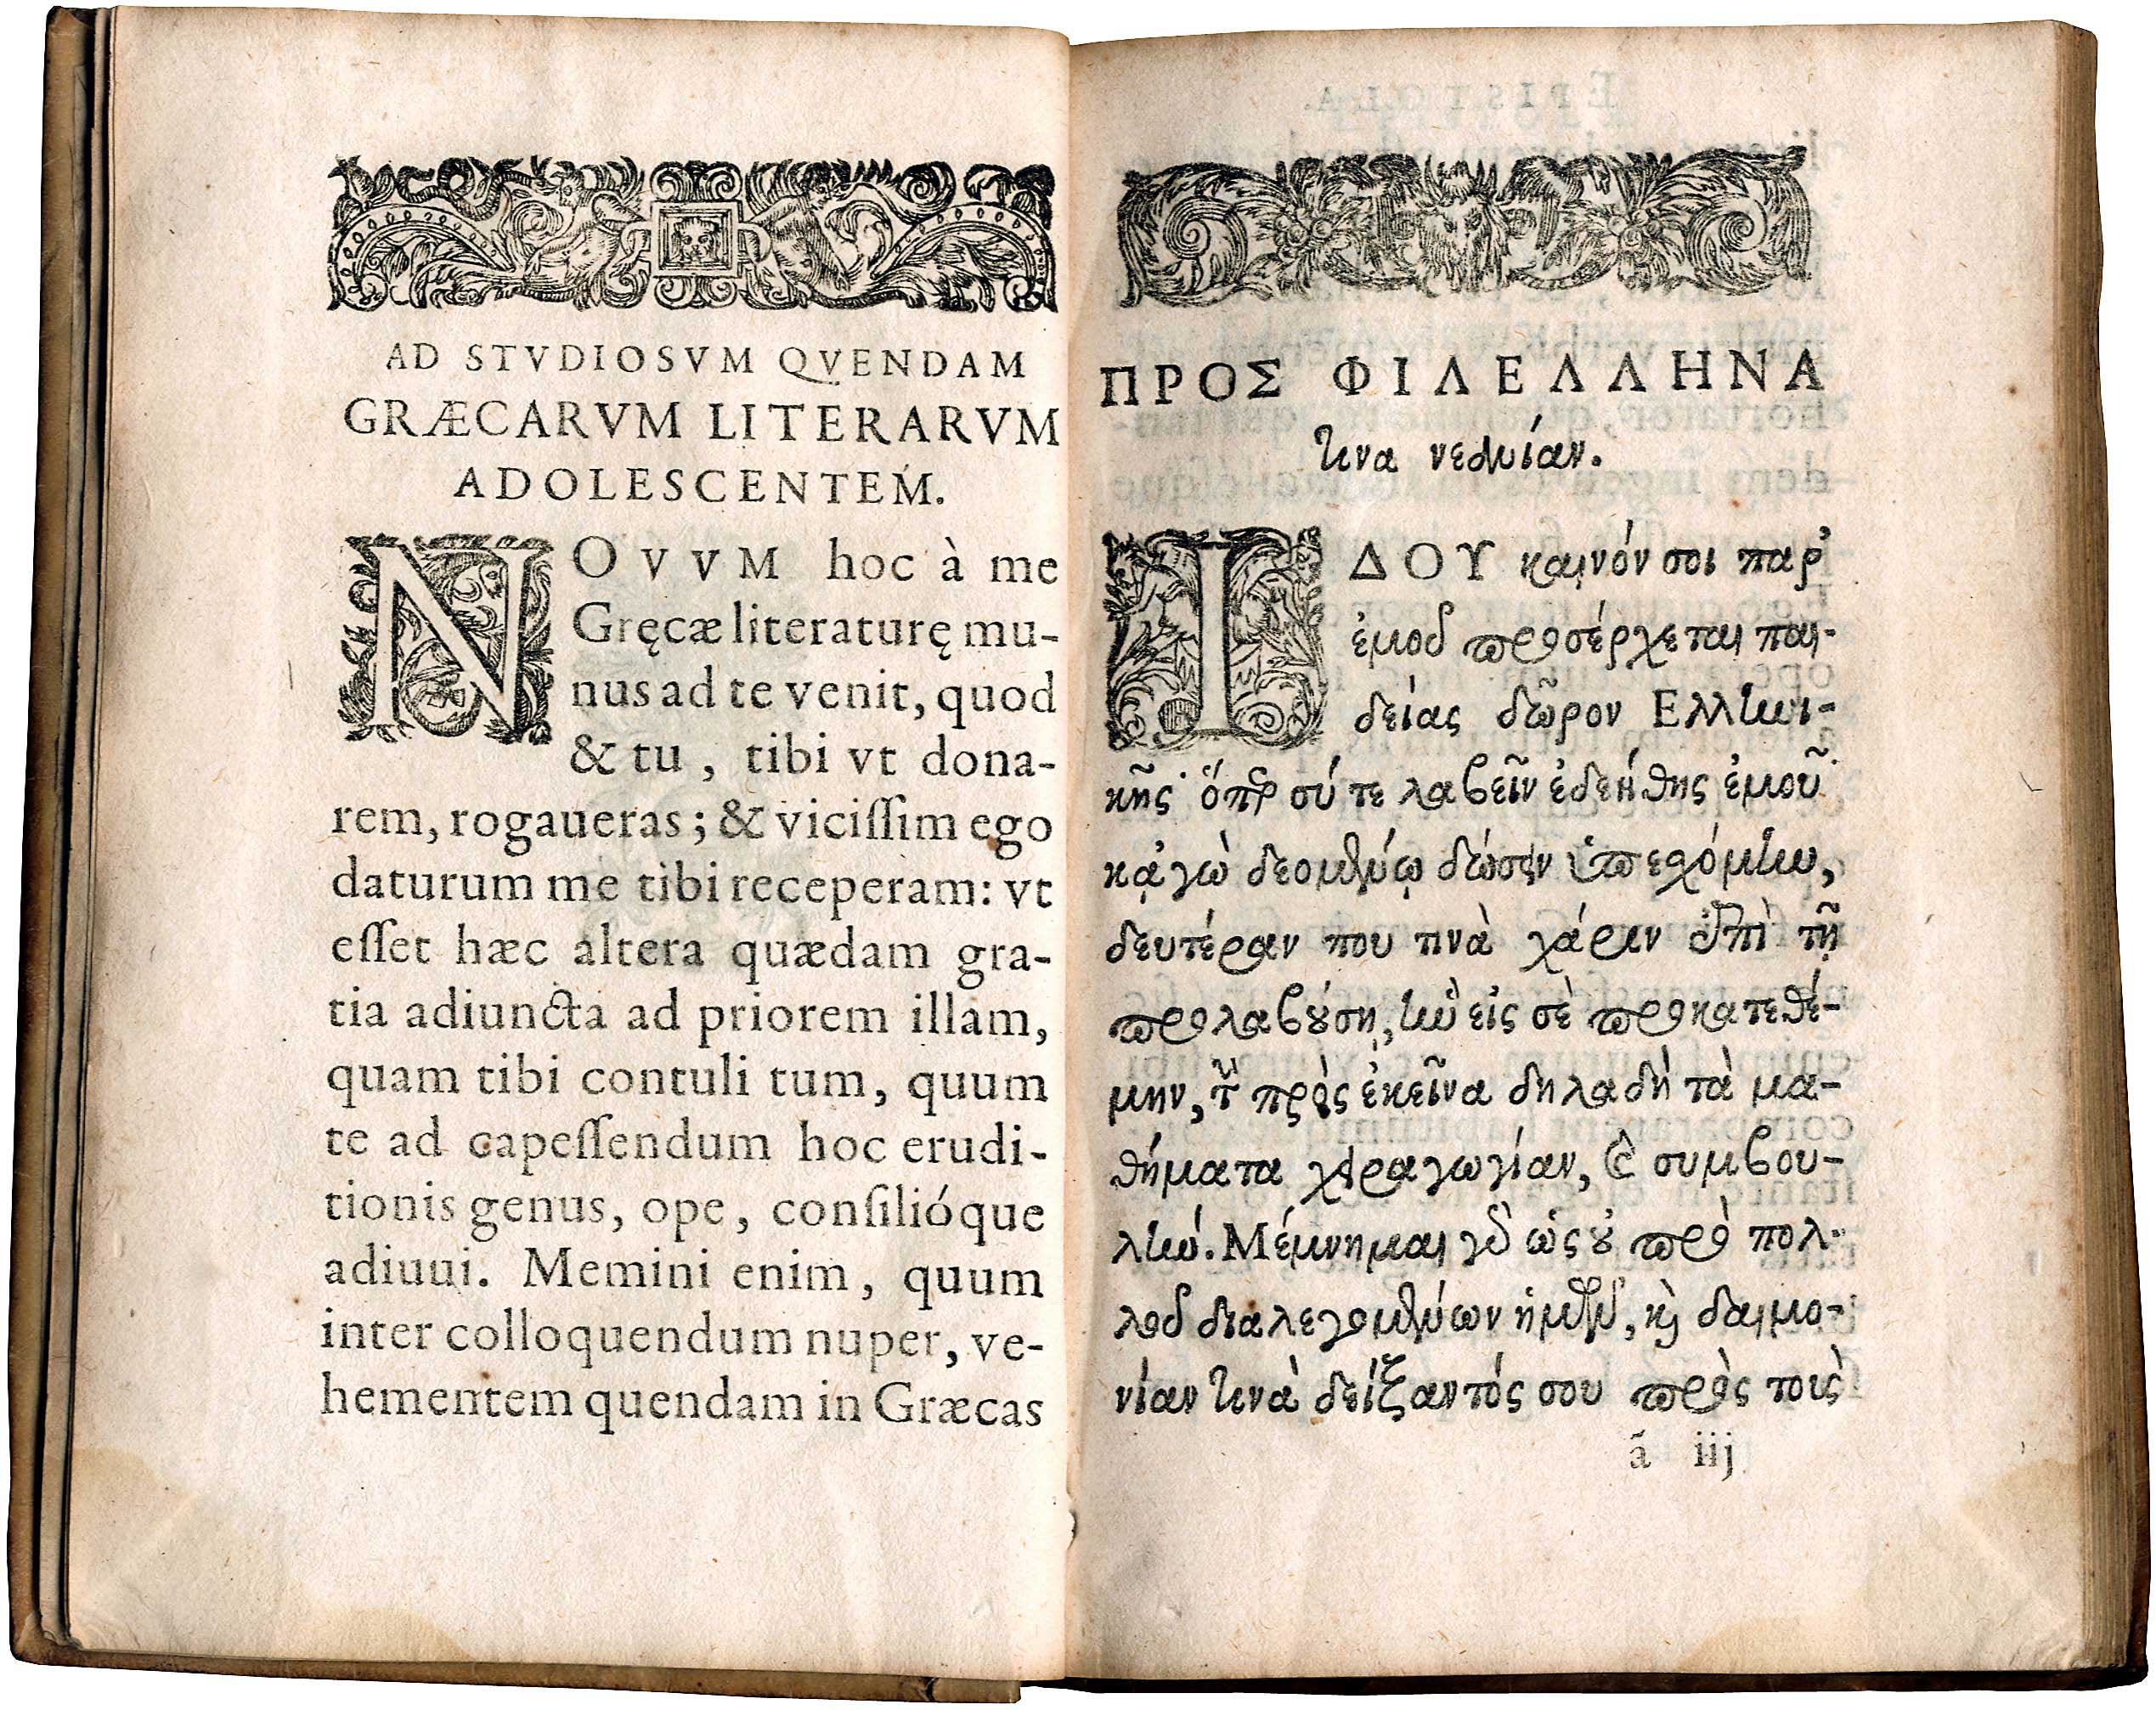 AD STVDIOSVM QVENDAM
GRÆCARVM LITERARVM
ADOLESCENTEM.
NOVVM hoc à me
Gręcæ literaturę mu-
nus ad te venit, quod
& tu, tibi vt dona-
rem, rogaueras; & viciſſim ego
daturum me tibi receperam: vt
eſſet hæc altera quædam gra-
tia adiuncta ad priorem illam,
quam tibi contuli tum, quum
te ad capeſſendum hoc erudi-
tionis genus, ope, conſilióque
adiuui. Memini enim, quum
inter colloquendum nuper, ve-
hementem quendam in Græcas
ΠΡΟΣ ΦΙΛΕΛΛΗΝΑ
τινα νεανίαν.
ΙΔΟΥ καινόν σοι παρ’
ἐμοῦ προσέρχεται παι-
δείας δῶρον Ελλίωι-
κῆς· ὅπερ σύ τε λαβεῖν ἐδεήθης ἐμοῦ
κᾀγὼ δεομένῳ δώσειν ὑπεχόμίω,
δευτέραν που τινὰ χάριν ἐπὶ τῇ
προλαβούσῃ, ἣν εἰς σὲ προκατεθέ-
μην, τὴν πρὸς ἐκεῖνα δηλαδὴ τὰ μα-
θήματα χειραγωγίαν, καὶ συμβου-
λήν. Μέμνημαι γὰρ ὡς οὐ πρὸ πολ-
λοῦ διαλεγομένων ἡμῶν, καὶ δαιμο-
νίαν τινὰ δείξαντός σου πρὸς τοὺς
ã iij